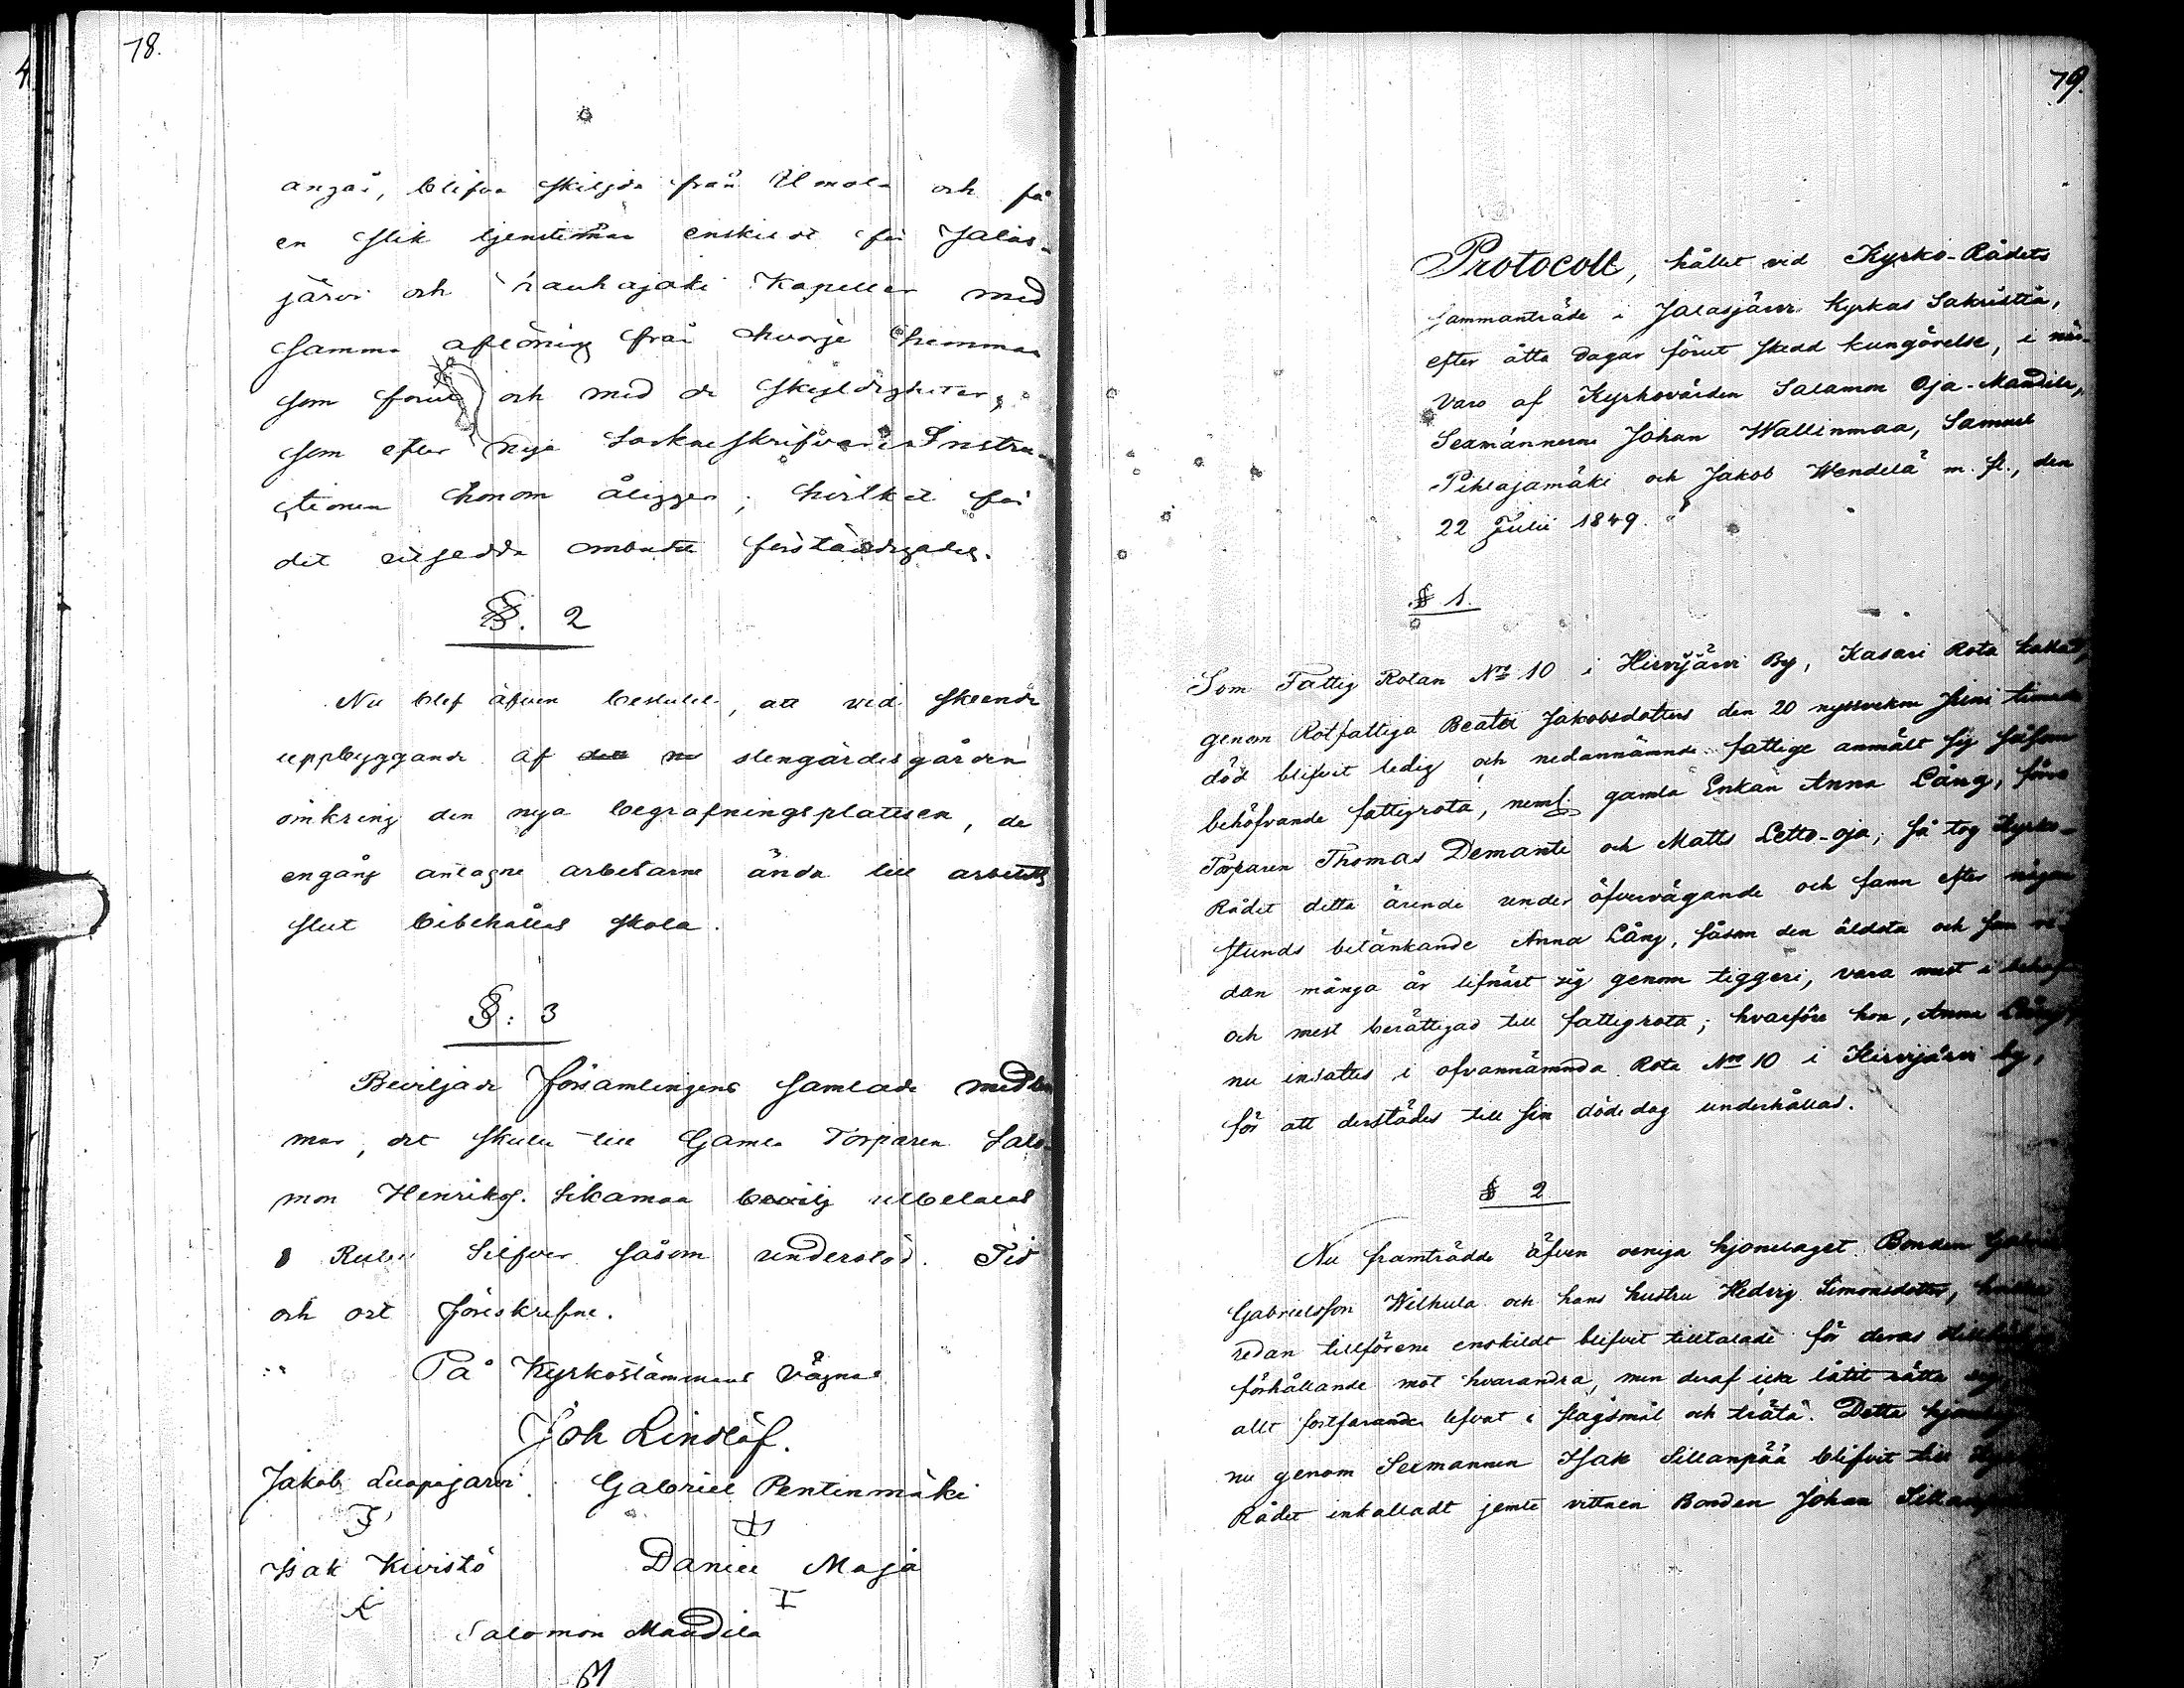 78.
angå, blifva skiljda från Ilmola och få
en slik tjensteman enskildt för Jalas-
järvi och Kauhajoki Kapeller med
samma aflöning från hvarje hemman
som förut och med de skyldigheter,
som efter nya Sockneskrifvare Instru-
ctionen honom åligger; hvilket för
det utsedda ombudet förständigades.
§. 2
Nu blef äfven beslutet, att vid skeende
uppbyggande af stengärdesgården
omkring den nya begrafningsplatsen, de
engång antagne arbetarne ända till arbetets
slut bibehållas skola.
§: 3
Beviljade Församlingens samlade medlem
mar, det skulle till Gamla Torparen Salo-
mon Henriks. Sikamaa utbetalas
Rubel Silfver såsom understöd. Tid
och ort föreskrefne.
På Kyrkostämmans vägnar
Joh Lindlöf.
Jakob Luopajärvi. Gabriel Pentinmäki
Isak Kivistö Daniel Maja
Salomon Mandila
M
79.
Protocoll, hållet vid Kyrko-Rådets
sammanträde i Jalasjärvi Kyrkas Sakristia,
efter åtta dagar förut skedd kungörelse, i när-
varo af Kyrkovärden Salamon Oja-Mandila,
Sexmännerne Johan Wallinmaa, Samuel
Pihlajamäki och Jakob Wendelä m. fl., den
22 Julii 1849.
§ 1.
Som Fattig Rotan No 10 i Hirvijärvi By, Kasari Rota kallad,
genom Rotfattiga Beata Jakobsdotters den 20 nyssvekne Junii timade
död blifvit ledig och nedannämnde fattige anmält sig såsom
behöfvande fattigrota, neml. gamla Enkan Anna Lång, förra
Torparen Thomas Demante och Matts Letto-oja; så tog Kyrko-
Rådet detta ärende under öfvervägande och fann efter någon
stunds betänkande Anna Lång, såsom den äldsta och som re-
dan många år lifnärt sig genom tiggeri, vara mest i behof
och mest berättigad till fattigrota; hvarföre hon, Anna Lång,
nu insattes i ofvannämnda Rota No 10 i Hirvijärvi by,
för att derstädes till sin dödedag underhållas.
§ 2
Nu framträdde äfven oeniga hjonelaget Bonden Gabriel
Gabrielsson Wilhula och hans hustru Hedvig Simonsdotter, hvilka
redan tillförene enskildt blifvit tilltalade för deras
förhållande mot hvarandra, men deraf icke låtit rätta sig,
allt fortfarande lefvat i slagsmål och träta. Detta hjonelag
nu genom Sexmannen Isak Sillanpää blifvit till Kyrko
Rådet inkalladt jemte vittnen Bonden Johan Sillanpää